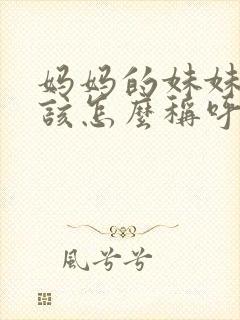 妈妈的妹妹
該怎麼稱呼
風兮兮